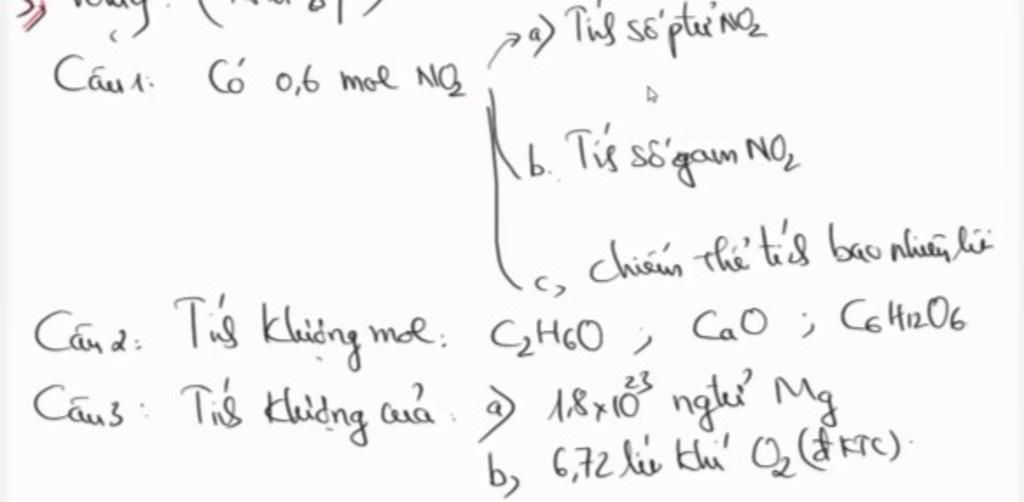 Câu 1: Có 0,6 mol NO₂
a) Tính số ptử NO₂
b. Tính số gam NO₂
c, chiếm thể tích bao nhiêu lít
Câu 2: Tính klượng mol: C₂H₆O ; CaO ; C₆H₁₂O₆
Câu 3: Tính klượng của: a) 1,8×10²³ ngtử Mg
b, 6,72 lít khí O₂ (đktc).